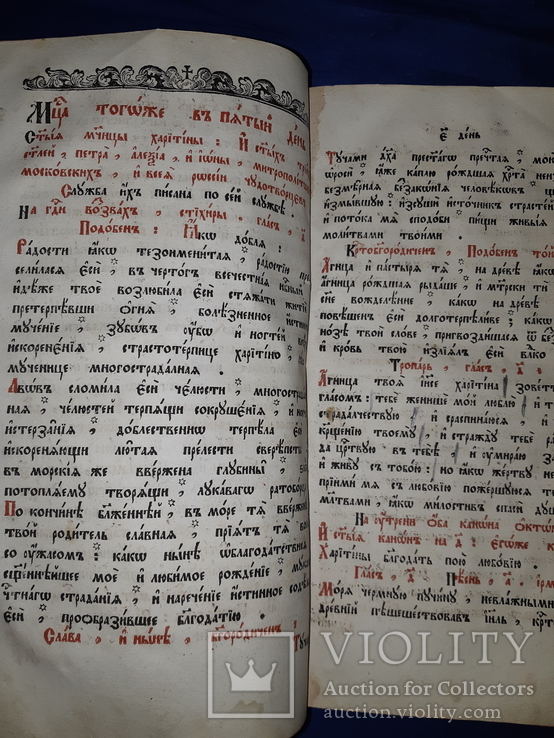 Мц҃а тогѡже въ пѧтый день
Ст҃ыѧ мч҃ницы харїтїны : И ст҃ыхъ
ст҃лей , петра , алеѯіа , и іѡны , митрополитѡвъ
московскихъ , и всеѧ рѡсеїи чудотворцевъ
Служба ихъ писана по сей службѣ .
На гд҃и воззвахъ , стїхиры . гласъ , д҃
Подобенъ : Ꙗкѡ добля :
Радости ꙗкѡ тезоименитаѧ , радостію пре
селиласѧ еси , въ чертогъ всечестнаѧ
идѣже твое возлюбила еси стѧжати житіи
претерпѣвши огнѧ , болѣзненное
мученїе , зубѡвъ убѡ и ногтей
искорененїѧ , страстотерпице харітіно ,
мученице многострадалнаѧ .
Лвѡвъ сломила еси челюсти , многострадал
наѧ , челюстей терпѧщи сокрушенїѧ , и ног
истерзанїѧ , доблественнѡ терпѣла е
искоренѧющи лютаѧ прелести сверѣпст
въ морскіѧ же ввержена глубины , без
потоплѧему творѧщи , лукаваго ратоборца
По кончинѣ блаженнѣй , въ море тѧ ввержен
твой родитель славнаѧ , пріѧтъ тѧ во
со ужасомъ : какѡ нынѣ ѡблагодатствен
сщ҃еннѣйшее мое и любимое рожденїе , мук
чтⷭ҇нагѡ страданїѧ , и нареченїе истинное содѣла
еси , прообразившее благодатію .
Слава , и нынѣ , бг҃ородиченъ
Туча
е҃ день
Тучами дх҃а престагѡ пречтаѧ , мою
ѡроси , ꙗже каплю рождшаѧ хрⷭ҇та
безмѣрнаѧ беззаконїѧ человѣкѡвъ
измывшую : изсуши источникъ страстей
и потока мѧ сподоби пищи живыѧ
молитвами твоими .
Кртобгородиченъ , Подобенъ той
Агница и пастырѧ тѧ на древѣ ꙗкѡ
агница рождшаѧ рыдаше , и мт҃рски ти
сн҃е вожделенне , какѡ на древѣ
повѣшенъ еси долготерпѣливе ; какѡ
нозѣ твои слове , пригвоздишасѧ ѿ без
и кровь твою изліѧлъ еси влⷣко
Тропарь , гласъ , д҃ .
Агница твоѧ іисе харітіна зоветъ
гласомъ : тебе женише мой люблю , и т
страдалчествую , и сраспинаюсѧ , и
крщенїю твоему , и стражду тебе ра
да цр҃твую въ тебѣ , и умираю за
и живу съ тобою : но ꙗкѡ жертву не
прїими мѧ съ любовїю пожершуюсѧ т
мл҃твами , ꙗкѡ милостивъ спаси душ
На утрени оба канѡна октѡ
И ст҃ыѧ канонъ на д҃ : Егѡже
Харітіны благодать пою любовїю .
Гласъ , д҃ Пѣснь , а҃ , ірм
Морѧ чермную пучину , невлажными
древній пѣшешествовавъ іиль , крⷭ҇т
VIOLITY
Auction for Collectors
auction.violity.com